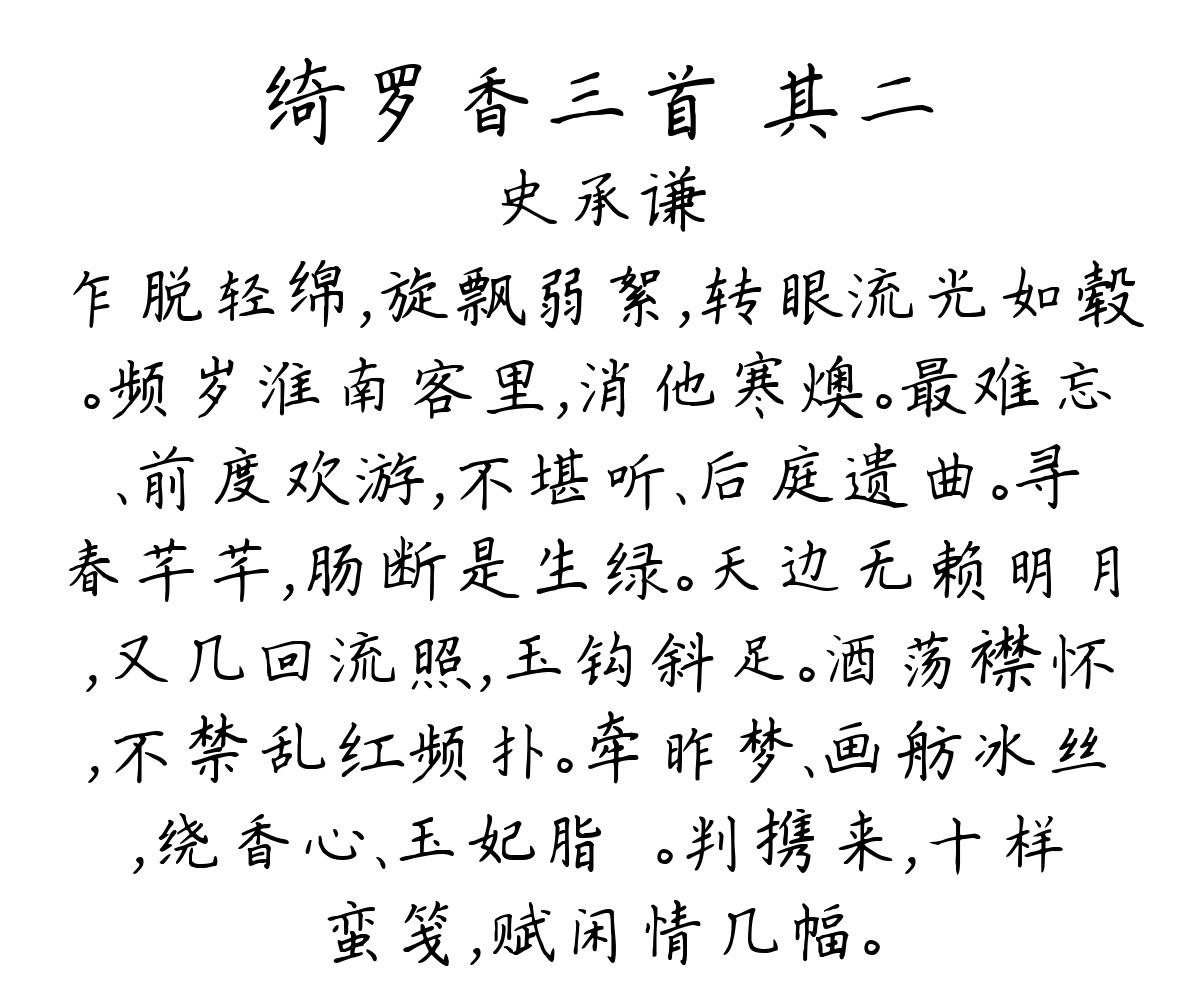 绮罗香三首 其二
史承谦
乍脱轻绵,旋飘弱絮,转眼流光如毂
。频岁淮南客里,消他寒燠。最难忘
、前度欢游,不堪听、后庭遗曲。寻
春芊芊,肠断是生绿。天边无赖明月
,又几回流照,玉钩斜足。洒荡襟怀
,不禁乱红频扑。牵昨梦、画舫冰丝
,绕香心、玉妃脂 。判携来,十样
蛮笺,赋闲情几幅。